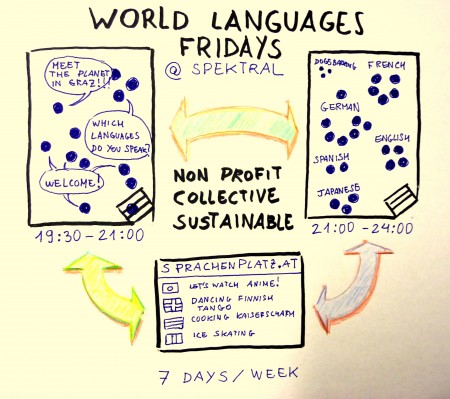 WORLD LANGUAGES
FRIDAYS
@ SPEKTRAL
MEET
THE PLANET
IN GRAZ!!!
WHICH
LANGUAGES
DO YOU SPEAK?
WELCOME!
19:30 - 21:00
NON PROFIT
COLLECTIVE
SUSTAINABLE
DOGSBARKING
FRENCH
GERMAN
ENGLISH
SPANISH
JAPANESE
21:00 - 24:00
SPRACHENPLATZ.AT
LET'S WATCH ANIME!
DANCING FINNISH
TANGO
COOKING KAISERSCHARM
ICE SKATING
7 DAYS/WEEK